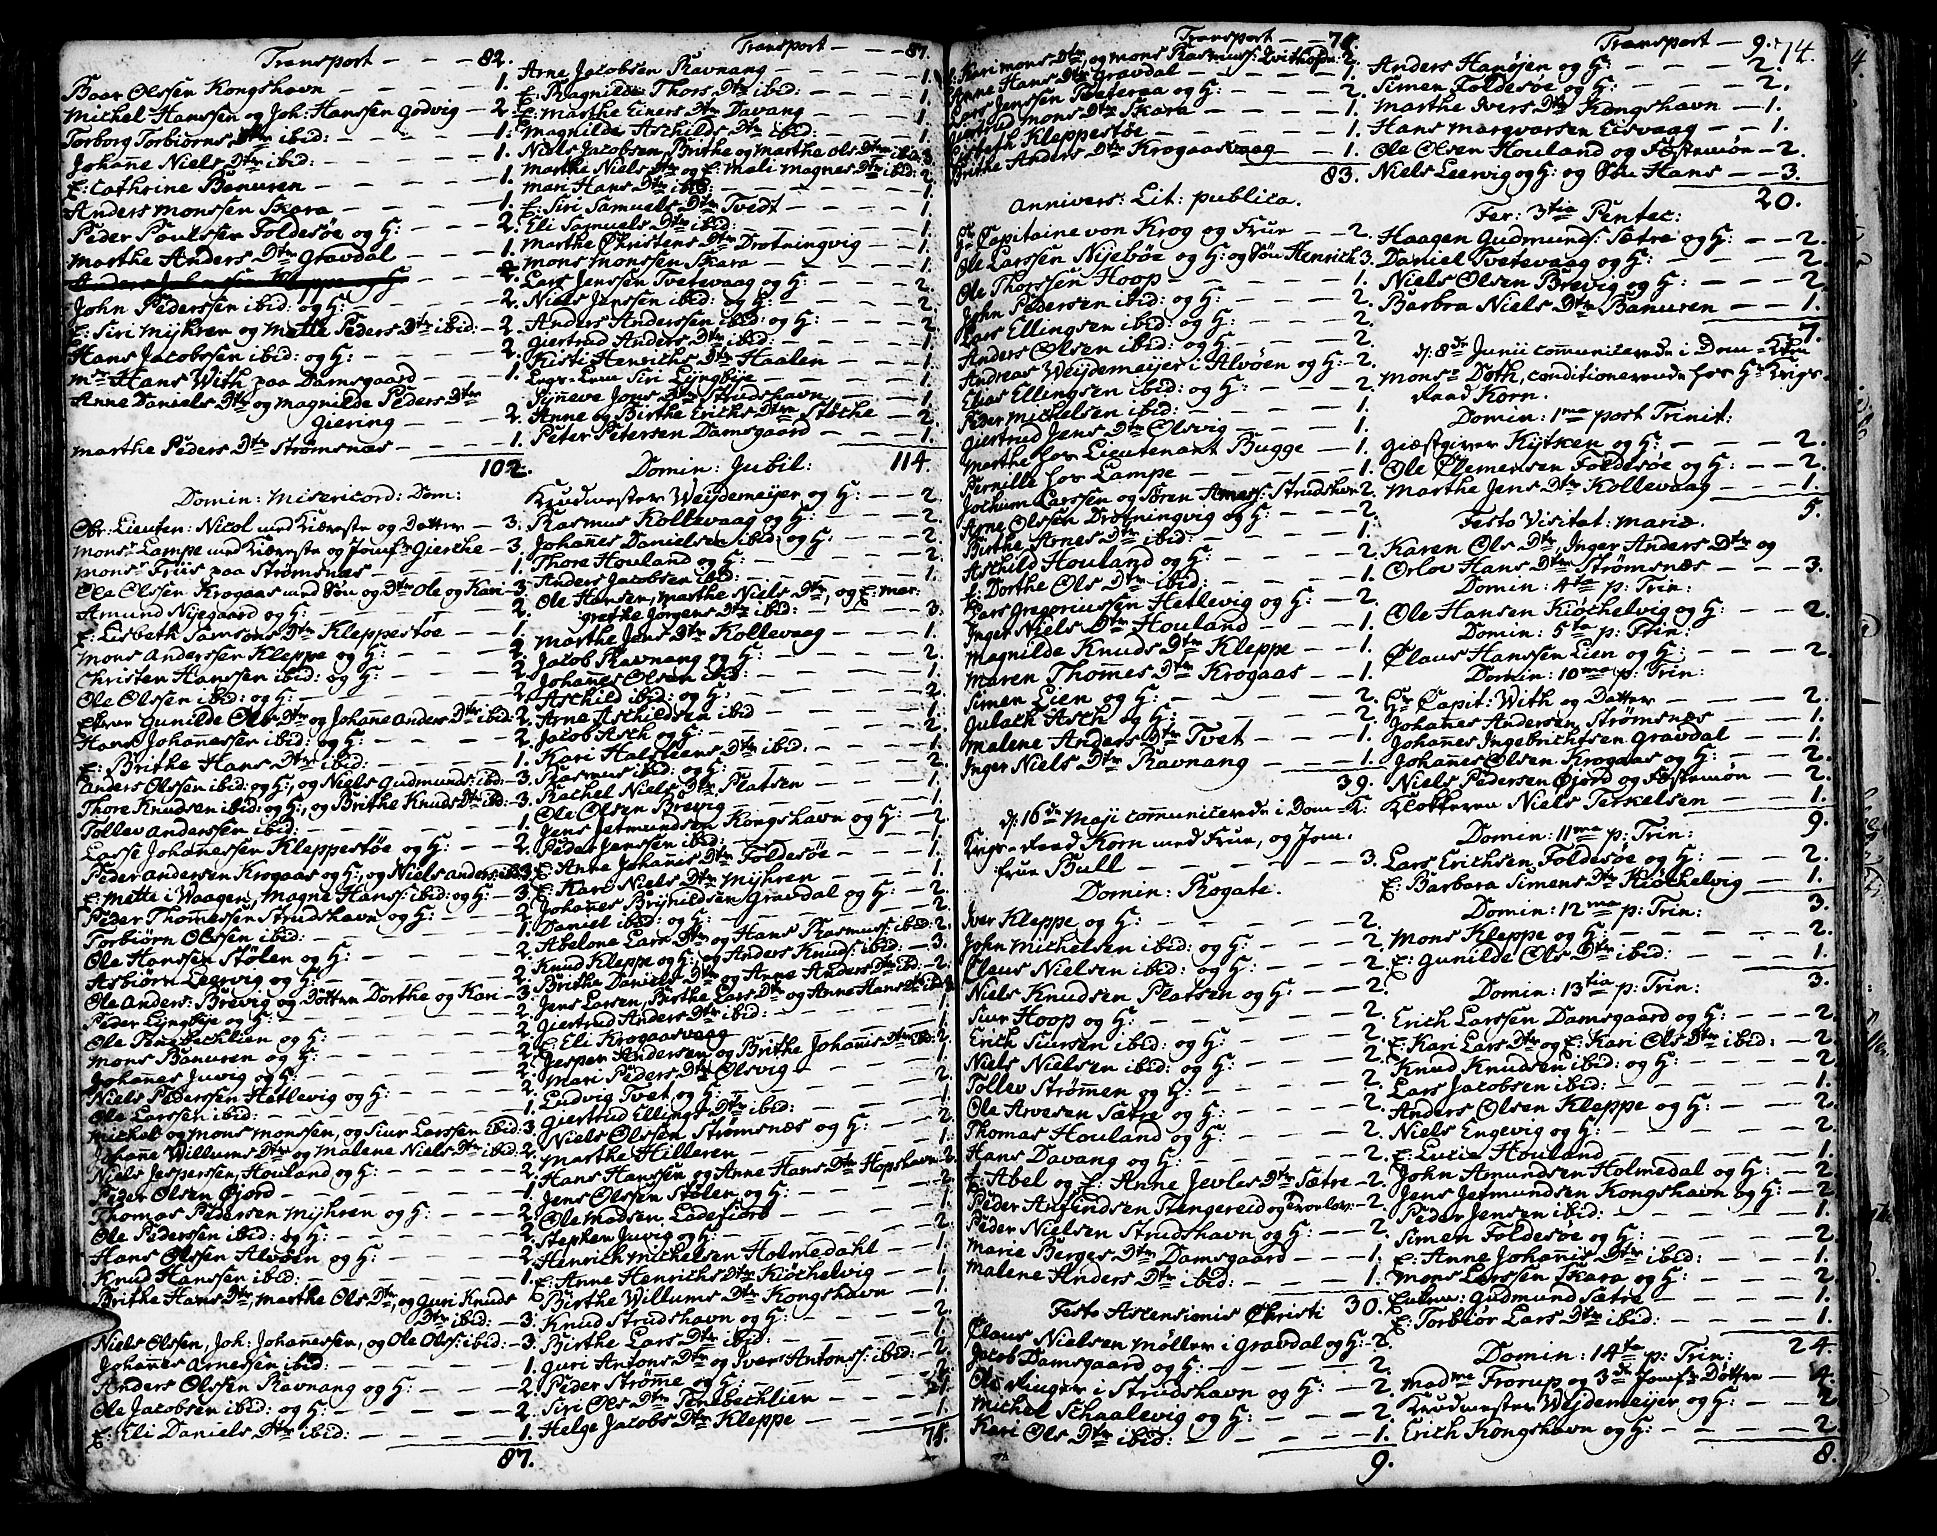 Transport - - - 82.
Baar Olssen Kongshavn - - - 1.
Michel Hanssen og Joh: Hanssen Godvig - 2.
Torborg Torbiørns Dtr ibid: - - 1.
Johane Niels Dtr ibid: - - - 1.
E: Cathrine Banuren - - - 1.
Anders Monssen Skara - - - 1.
Peder Poulssen Foldesøe og H: - - 2.
Marthe Anders Dtr Gravdal - - - 1.
John Pederssen ibid: og H: - - - 2.
E: Siri Myhren og Mette Peders Dtr ibid: - 2.
Hans Jacobssen ibid: og H: - - - 2.
Mr Hans With paa Damsgaard - - - 1.
Anne Daniels Dtr og Magnilde Peders Dtr
Giering - - - 2.
Marthe Peders Dtr Strømsnæs - - - 1.
102.
Domin: Misericord: Dom:
Obr: Lieuten: Nicol med Kiæreste og Datter - 3.
Monsr Lampe med Kiæreste og Jomfr Gierthe - 3.
Monsr Friis paa Strømsnæs - - - 1.
Ola Olssen Krogaas med Søn og Dtr Ole og Kari - 3.
Amund Nyegaard og H: - - - 2.
E: Lisbeth Samsons Dtr Kleppestøe - - 1.
Mons Anderssen Kleppe og H: - - 2.
Christen Hanssen ibid: og H: - - - 2.
Ole Olssen ibid: og H: - - - 2.
Gunilde Ols Dtr og Johane Anders Dtr ibid: 2.
Hans Johanessen ibid: og H: - - 2.
E: Brithe Hans Dtr ibid: - - - 1.
Anders Olssen ibid: og H:, og Niels Gudmunds: ibid: 3.
Thore Knudsen ibid: og H:, og Brithe Knuds Dtr ibid: - 3.
Tollev Anderssen ibid: - - - 1.
Lasse Johanessen Kleppestøe og H: - - 2.
Peder Andersen Krogaas og H:, og Niels Anders: ibid: 3.
E: Mette i Waagen, Magne Hanss: ibid: og H: - 3.
Peder Thomessen Strudshavn og H: - - 2.
Torbiørn Olssen ibid: - - - 1.
Ole Hanssen Stølen og H: - - - 2.
Asbiørn Leervig og H: - - - 2.
Ole Anders: Brevig og Døttre Dorthe og Kari - 3.
Peder Lyngbye og H: - - - 2.
Ole Tenebechlien og H: - - - 2.
Mons Banuren og H: - - - 2.
Johanes Juvig og H: - - - 2.
Niels Pederssen Hetlevig og H: - - - 2.
Ole Larssen ibid: - - - 1.
Michel og Mons Monssen, og Siur Larssen ibid: 3
Johane Willums Dtr og Malene Niels Dtr ibid: 2.
Niels Jesperssen Houland og H: - - 2.
Peder Olsen Giord - - - 1.
Thomas Pedersen Myhren og H: - - 2.
Ole Pederssen ibid: og H: - - - 2.
Hans Olssen Alvøen og H: - - - 2.
Knud Hanssen ibid: - - - 1.
Brithe Hans Dtr, Marthe Ols Dtr, og Guri Knuds
Dtr ibid: - - 3.
Niels Olssen, Joh: Johanessen, og Ole Olss: ibid: - 3.
Johanes Arnessen ibid: - - - 1.
Anders Olssen Ravnang og H: - - - 2.
Ole Jacobsen ibid: og H: - - - 2.
E: Eli Daniels Dtr ibid: - - - 1.
87.
Transport - - - 87.
Arne Jacobsen Ravnang - - - 1.
E: Ragnilde Thors Dtr ibid: - - - 1.
E: Marthe Einers Dtr Davang - - - 1.
Magnilde Aschilds Dtr ibid: - - - 1.
Niels Jacobsen, Brithe og Marthe Ols Dtr ibid: 3.
Marthe Niels Dtr og E: Mali Magnes Dtr ibid: 2.
Mari Hans Dtr ibid: - - - 1.
E: Siri Samuels Dtr Tvedt - - - 1.
Eli Samuels Dtr ibid: - - - 1.
Marthe Christens Dtr Drotningvig - - 1.
Mons Monssen Skara - - - 1.
Lars Jenssen Tvetevaag og H: - - 2.
Niels Jenssen ibid: og H: - - - 2.
Anders Anderssen ibid: og H: - - 2.
Giertrud Anders Dtr ibid: - - - 1.
Kirsti Henrichs Dtr Haalen - - - 1.
Siri Lyngbye - - - 1.
Synneve Jons Dtr Strudshavn - - 1.
Anne og Birthe Erichs Dtr Støthe - - 2.
Peter Petersen Damsgaard - - - 1.
114.
Domin: Jubil:
Krudmester Weydemeyer og H: - - 2.
Rasmus Kollevaag og H: - - - 2.
Johanes Danielsen ibid: og H: - - 2.
Thore Houland og H: - - - 2.
Anders Jacobsen ibid: - - - 1.
Ole Hansen, Marthe Niels Dtr, og E: Mar-
grethe Jørgens Dtr ibid: - - - 3.
Marthe Jens Dtr Kollevaag - - - 1.
Jacob Ravnang og H: - - - 2.
Johanes Olsen ibid: - - - 1.
Aschild ibid: og H: - - - 2.
Arne Aschildsen ibid - - - 1.
Jacob Asch og H: - - - 2.
Kari Halsteens Dtr ibid: - - - 1.
Rasmus ibid: og H: - - - 2.
Rachel Niels Dtr Platsen - - - 1.
Ole Olsen Brevig - - - 1.
Jens Jetmundsen Kongshavn og H: - - 2.
Peder Jenssen ibid: - - - 1.
E: Anne Johanis Dtr Foldesøe - - - 1.
E: Kari Niels Dtr Myhren - - - 1.
Johanes Brynildsen Gravdal og H: - - 2.
Daniel ibid: og H: - - - 2.
Abelone Lars Dtr og Hans Rasmuss: ibid: 2.
Knud Kleppe og H: og Anders Knuds: ibid: - 3.
Brithe Daniels Dtr og Anne Anders Dtr ibid: - 2.
Jens Larsen, Birthe Lars Dtr og Anne Hans Dtr ibid: 3.
Giertrud Anders Dtr ibid: - - - 1.
E: Eli Krogaasvaag - - - 1.
Jesper Andersen og Brithe Johanis Dtr ibid: 2.
Mari Peders Dtr Olsvig - - - 1.
Ludvig Tvet og H: - - - 2.
Giertrud Ellings Dtr ibid: - - - 1.
Niels Olssen Strømsnæs og H: - - 2.
Marthe Hilleren - - - 1.
Hans Hanssen og Anne Hans Dtr Hopshavn - 2.
Jens Olssen Stølen og H: - - - 2.
Ole Madsen Ladefiord - - - 1.
Stephen Juvig og H: - - - 2.
Henrich Michelsen Holmedahl - - - 1.
E: Anne Henrichs Dtr Kiøchelvig - - - 1.
Birthe Willums Dtr Kongshavn - - - 1.
Knud Strudshavn og H: - - - 2.
Birthe Lars Dtr ibid: - - - 1.
Guri Antons Dtr og Iver Antonss: ibid: - 2.
Peder Strøme og H: - - - 2.
Siri Ols Dtr Tenebechlien - - - 1.
Helge Jacobs Dtr Kleppe - - - 1.
78.
Transport - - - 78.
Kari Mons Dtr, og Mons Rasmuss: 2.
Anne Hans Dtr Gravdal - - - 1.
Lars Jenssen Tveteraa og H: - - 2.
Giertrud Mons Dtr Skara - - - 1.
Lisbeth Kleppestøe - - - 1.
Brithe Anders Dtr Krogaasvaag - - 1.
83.
Annivers: Lit: publica.
Hr Capitaine von Krog og Frue - - 2.
Ole Larssen Nyebøe og H: og Søn Henrich 3.
Ole Thorssen Hoop - - - 1.
John Pedersen ibid: og H: - - - 2.
Lars Ellingsen ibid: og H: - - - 2.
Anders Olsen ibid: og H: - - - 2.
Andreas Weydemeyer i Alvøen og H: - - 2.
Elias Ellingsen ibid: og H: - - - 2.
Peder Michelsen ibid: - - - 1.
Giertrud Jens Dtr Olsvig - - - 1.
Marthe hos Lieutenant Bugge - - 1.
Pernille hos Lampe - - - 1.
Jochum Larssen og Søren Amass: Strudshavn 2.
Arne Olssen Drotningvig og H: - - 2.
Birthe Arnes Dtr ibid: - - - 1.
Aschild Houland og H: - - - 2.
E: Dorthe Ols Dtr ibid: - - - 1.
Lars Gregoriussen Hetlevig og H: - - 2.
Inger Niels Dtr Houland - - - 1.
Magnilde Knuds Dtr Kleppe - - - 1.
Maren Thomes Dtr Krogaas - - 1.
Simen Lien og H: - - - 2.
Gulach Asch og H: - - - 2.
Malene Anders Dtr Tvet - - - 1.
Inger Niels Dtr Ravnang - - - 1.
39.
d: 16de Maji communicerede i Dom-K:
Krigs-Raad Korn med Frue, og Jom-
frue Bull - - - 3.
Domin: Rogate.
Iver Kleppe og H: - - - 2.
John Michelsen ibid: og H: - - - 2.
Claus Nielsen ibid: og H: - - - 2.
Niels Knudsen Platsen og H: - - - 2.
Siur Hoop og H: - - - 2.
Erich Siursen ibid: og H: - - - 2.
Niels Nielsen ibid: og H: - - - 2.
Tollev Strømen og H: - - - 2.
Ole Arvesen Sætre og H: - - - 2.
Thomas Houland og H: - - - 2.
Hans Davang og H: - - - 2.
E: Abel og E: Anne Jevles Dtr Sætre - 2.
Peder Anfindsen Stengereid og 2.
Peder Nielsen Strudshavn og H: - - 2.
Marie Berges Dtr Damsgaard - - 1.
Malene Anders Dtr ibid: - - - 1.
30.
Festo Ascensionis Christi
Claus Nielsen Møller i Gravdal og H: - 2.
Jacob Damsgaard og H: - - - 2.
Ole Ringer i Strudshavn og H: - - 2.
Michel Schaalevig og H: - - - 2.
Kari Ols Dtr ibid: - - - 1.
9.
Transport - 9. 74.
Anders Hanøsen og H: - - - 2.
Simen Foldesøe og H: - - - 2.
Marthe Ivers Dtr Kongshavn - - 1.
Hans Marqvarsen Eisvaag - - 1.
Ole Olsen Houland og Fæstemøn - 2.
Niels Leervig og H: og Søn Hans - - 3.
20.
Fer: 3tia Pentec:
Haagen Gudmunds: Sætre og H: - - 2.
Daniel Tvetevaag og H: - - - 2.
Niels Olsen Brevig og H: - - - 2.
Barbra Niels Dtr Banuren - - - 1.
7.
d: 8de Junii communicerede i Dom-Kirken
Monsr Doth, conditionerende hos Hr Krigs-
Raad Korn.
Domin: 1ma post Trinit:
Giæstgiver Kytken og H: - - - 2.
Ole Clemensen Foldesøe og H: - - 2.
Marthe Jens Dtr Kollevaag - - - 1.
5.
Festo Visitat: Mariæ.
Karen Ols Dtr, Inger Anders Dtr og
Orlov Hans Dtr Strømsnæs - - - 3.
Domin: 4ta p: Trin:
Ole Hansen Kiøchelvig og H: - - 2.
Domin: 5ta p: Trin:
Claus Hanssen Lien og H: - - - 2.
Domin: 10ma p: Trin:
Hr Capit: With og Datter - - - 2.
Johanes Andersen Strømsnæs - - - 1.
Johanes Ingebrichtsen Gravdal - - 1.
Johanes Olsen Krogaas og H: - - 2.
Niels Pedersen Giord og Fæstemøn - - 2.
Klokkeren Niels Terkelsen - - - 1.
9.
Domin: 11ma p: Trin:
Lars Erichsen Foldesøe og H: - - 2.
E: Barbara Simens Dtr Kiøchelvig - - 1.
3.
Domin: 12ma p: Trin:
Mons Kleppe og H: - - - 2.
E: Gunilde Ols Dtr ibid: - - - 1.
3.
Domin: 13tia p: Trin:
Erich Larssen Damsgaard og H: - - 2.
E: Kari Lars Dtr og E: Kari Ols Dtr ibid: - 2.
Knud Knudsen ibid: og H: - - - 2.
Lars Jacobsen ibid: - - - 1.
Anders Olsen Kleppe og H: - - - 2.
Niels Engevig og H: - - - 2.
E: Lucie Houland - - - 1.
John Amundsen Holmedal og H: - - 2.
Jens Jetmundsen Kongshavn og H: - - 2.
Peder Jensen ibid: - - - 1.
Simen Foldesøe og H: - - - 2.
E: Anne Johanis Dtr ibid: - - - 1.
Mons Larssen Skara og H: - - - 2.
Gudmund Sætre - - - 1.
E: Torbiør Lars Dtr ibid: - - - 1.
24.
Domin: 14ta p: Trin:
Madme Frorup og 3de Jomfr Døttre - - 4.
Krudmester Weydemeyer og H: - - 2.
Erich Kongshavn og H: - - - 2.
8.